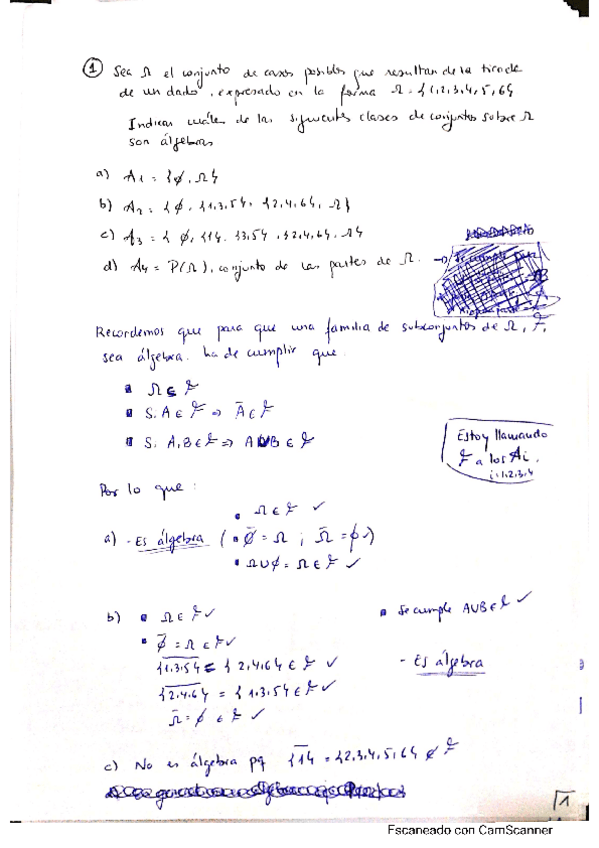 ① Sea Ω el conjunto de casos posibles que resultan de la tirada
de un dado, expresado en la forma Ω = {1,2,3,4,5,6}
Indicar cuáles de las siguientes clases de conjuntos sobre Ω
son álgebras
a) A1 = {∅, Ω}
b) A2 = {∅, {1,3,5}, {2,4,6}, Ω}
c) A3 = {∅, {1}, {3,5}, {2,4,6}, Ω}
d) A4 = P(Ω), conjunto de las partes de Ω. →
Recordemos que para que una familia de subconjuntos de Ω, F,
sea álgebra, ha de cumplir que:
▪ Ω ∈ F
▪ Si A ∈ F ⇒ Ā ∈ F
▪ Si A,B ∈ F ⇒ A∪B ∈ F
Estoy llamando
F a los Ai.
i=1,2,3,4
Por lo que:
▪ Ω ∈ F ✓
a) - Es álgebra ( ▪ ∅̄ = Ω ; Ω̄ = ∅ ✓)
▪ Ω∪∅ = Ω ∈ F ✓
b) ▪ Ω ∈ F ✓ ▪ Se cumple A∪B ∈ F ✓
▪ ∅̄ = Ω ∈ F ✓
{1,3,5}‾ = {2,4,6} ∈ F ✓ - Es álgebra
{2,4,6}‾ = {1,3,5} ∈ F ✓
Ω̄ = ∅ ∈ F ✓
c) No es álgebra pq {1}‾ = {2,3,4,5,6} ∉ F
1
Escaneado con CamScanner